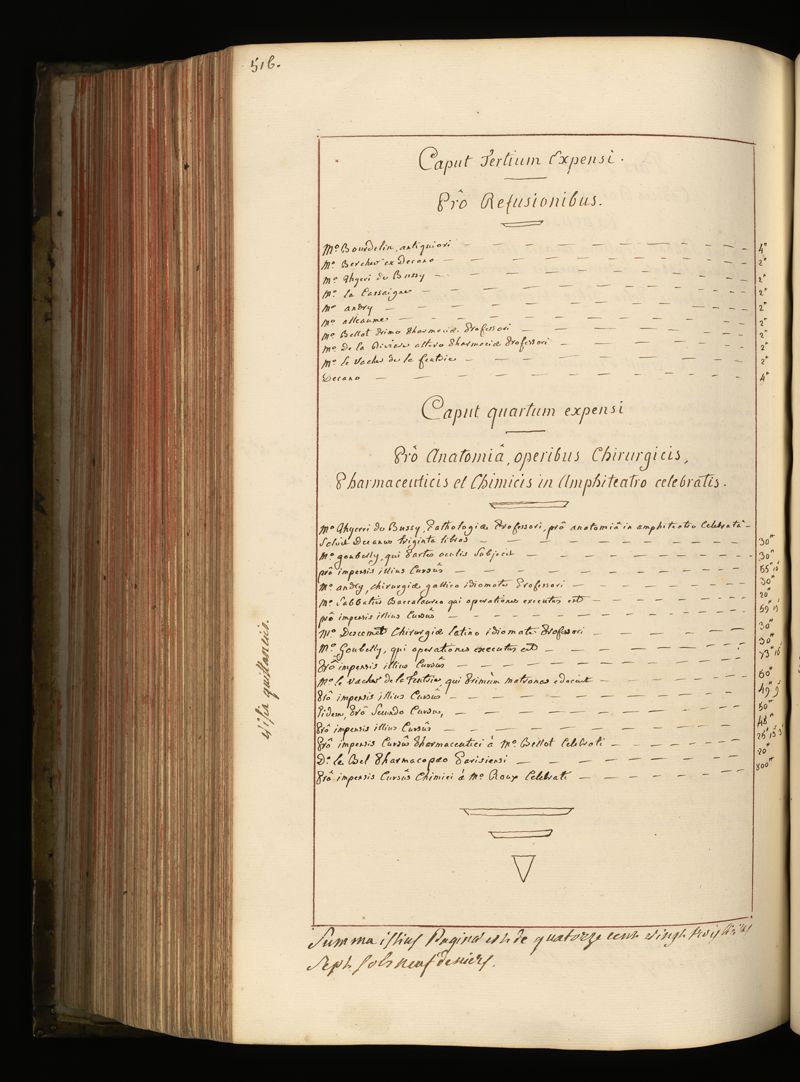 516.
Caput Tertium Expensi.
Prô Refusionibus.
Mo. Bourdelin, antiquiori — 4#
Mo. Bercher ex Decano — 2#
Mo. Thyeri de Bussy — 2#
Mo. la Cassaigne — 2#
Mo. andry — 2#
Mo. alleaume — 2#
Mo. Bellot Primo Pharmaciæ Professori — 2#
Mo. De la Riviere altero Pharmaciæ Professori — 2#
Mo. Le vacher de la feutrie — 2#
Decano — 4#
Caput quartum expensi
Prô Anatomiâ, operibus Chirurgicis,
Pharmaceuticis et Chimicis in Amphiteatro celebratis.
Mo. Thyerri de Bussy, Pathologiæ Professori, prô anatomiâ in amphiteatro Celebratâ —
Solvit Decanus triginta libras — 30#
Mo. goubelly, qui Partes oculis Subjecit — 30#
prô impensis illius Cursûs — 55#
Mo. andry, chirurgiæ gallico idiomate Professori — 30#
Mo. Sabbatier Baccalaureo qui operationes executus est — 20#
prô impensis illius Cursûs — 59#
Mo. Descemet Chirurgiæ latino idiomate Professori — 30#
Mo. Goubelly, qui operationes executus est — 30#
Prô impensis illius Cursûs — 73#
Mo. le vacher de la feutrie, qui Primùm matronas edocuit — 60#
Prô impensis illius Cursûs — 49#
Eidem, Prô Secundo Cursu, — 50#
Prô impensis illius Cursûs — 48#
Prô impensis Cursûs Pharmaceutici à Mo. Bellot Celebrati — 25#
Do. le Bel Pharmacopæo Parisiensi — 20#
Prô impensis Cursûs Chimici à Mo. Roux Celebrati — 800#
Visa quittancis.
Summa istius Paginæ est de quatorze cent vingt trois livres
Sept sols neuf deniers.